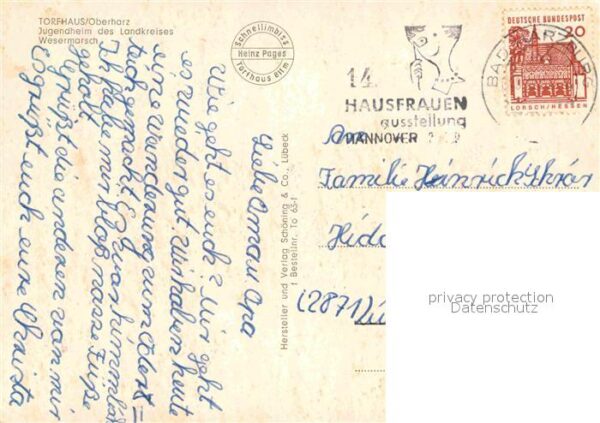 TORFHAUS/Oberharz
Jugendheim des Landkreises
Wesermarsch
Schnellimbiß
Heinz Pages
Torfhaus 811m
Liebe Oma u. Opa
Wie geht es euch? Mir geht
es wieder gut. Wir haben heute
eine wanderung zum Oder=
teich gemacht. Es war himmlisch
Ich habe mir bloß nasse Füße
geholt.
Grüßt die anderen von mir
Es grüßt euch eure Christa
Hersteller und Verlag Schöning & Co., Lübeck
1 Bestellnr. To 65-1
14.
HAUSFRAUEN
ausstellung
HANNOVER
BAD HARZBURG
DEUTSCHE BUNDESPOST
20
LORSCH/HESSEN
An
Familie Heinrich
(2871)
privacy protection
Datenschutz